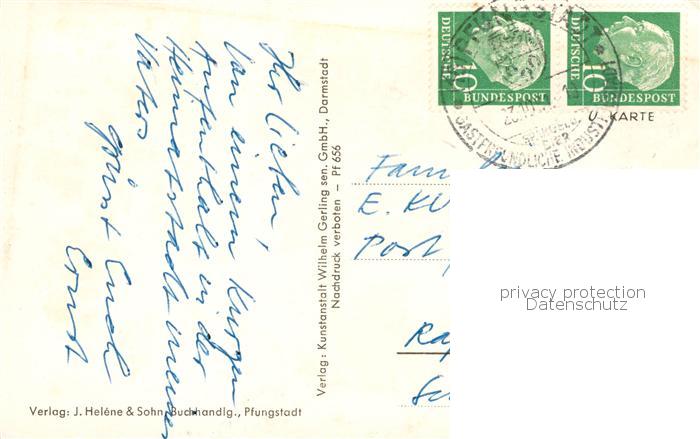 Ihr Lieben,
Von einem kurzen
Aufenthalt in der
Heimatstadt meines
Vaters
grüsst Euch
Ernst
Verlag: Kunstanstalt Wilhelm Gerling sen. GmbH., Darmstadt
Nachdruck verboten — Pf 656
Verlag: J. Heléne & Sohn, Buchhandlg., Pfungstadt
DEUTSCHE
10
BUNDESPOST
DEUTSCHE
10
BUNDESPOST
PFUNGSTADT
GASTFREUNDLICHE
KARTE
Fam
E. KU
Post
Ra
Sc
privacy protection
Datenschutz